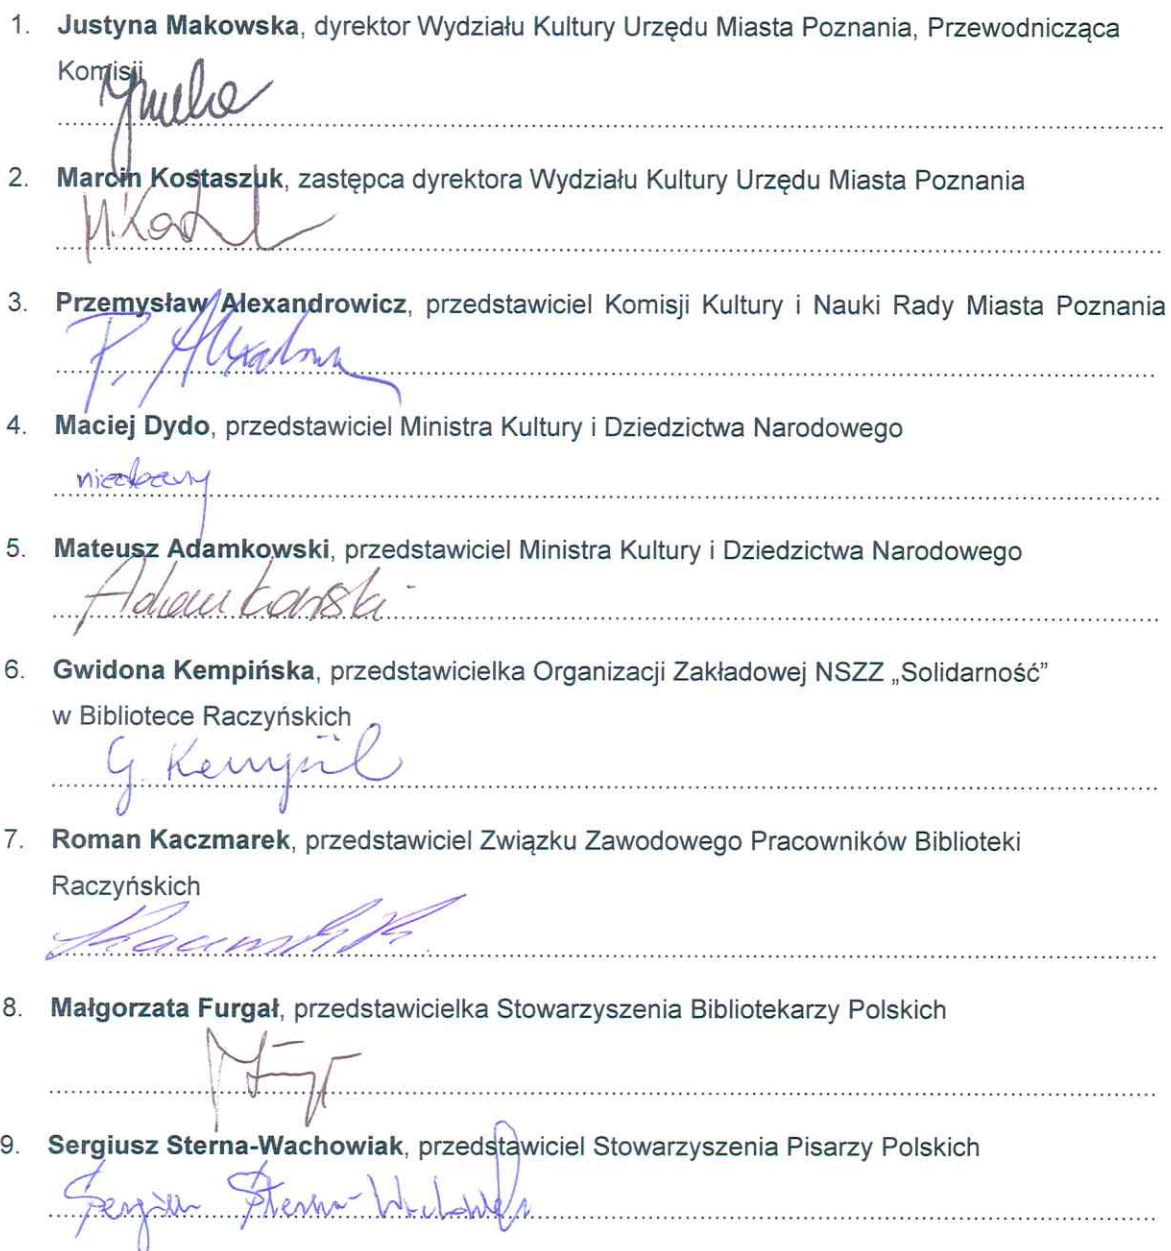 1. Justyna Makowska, dyrektor Wydziału Kultury Urzędu Miasta Poznania, Przewodnicząca
Komisji
2. Marcin Kostaszuk, zastępca dyrektora Wydziału Kultury Urzędu Miasta Poznania
M. Kost
3. Przemysław Alexandrowicz, przedstawiciel Komisji Kultury i Nauki Rady Miasta Poznania
P. Alexandrow
4. Maciej Dydo, przedstawiciel Ministra Kultury i Dziedzictwa Narodowego
nieobecny
5. Mateusz Adamkowski, przedstawiciel Ministra Kultury i Dziedzictwa Narodowego
Adamkowski
6. Gwidona Kempińska, przedstawicielka Organizacji Zakładowej NSZZ „Solidarność”
w Bibliotece Raczyńskich
G. Kempińsk
7. Roman Kaczmarek, przedstawiciel Związku Zawodowego Pracowników Biblioteki
Raczyńskich
8. Małgorzata Furgał, przedstawicielka Stowarzyszenia Bibliotekarzy Polskich
9. Sergiusz Sterna-Wachowiak, przedstawiciel Stowarzyszenia Pisarzy Polskich
Sergiusz Sterna-Wachowiak